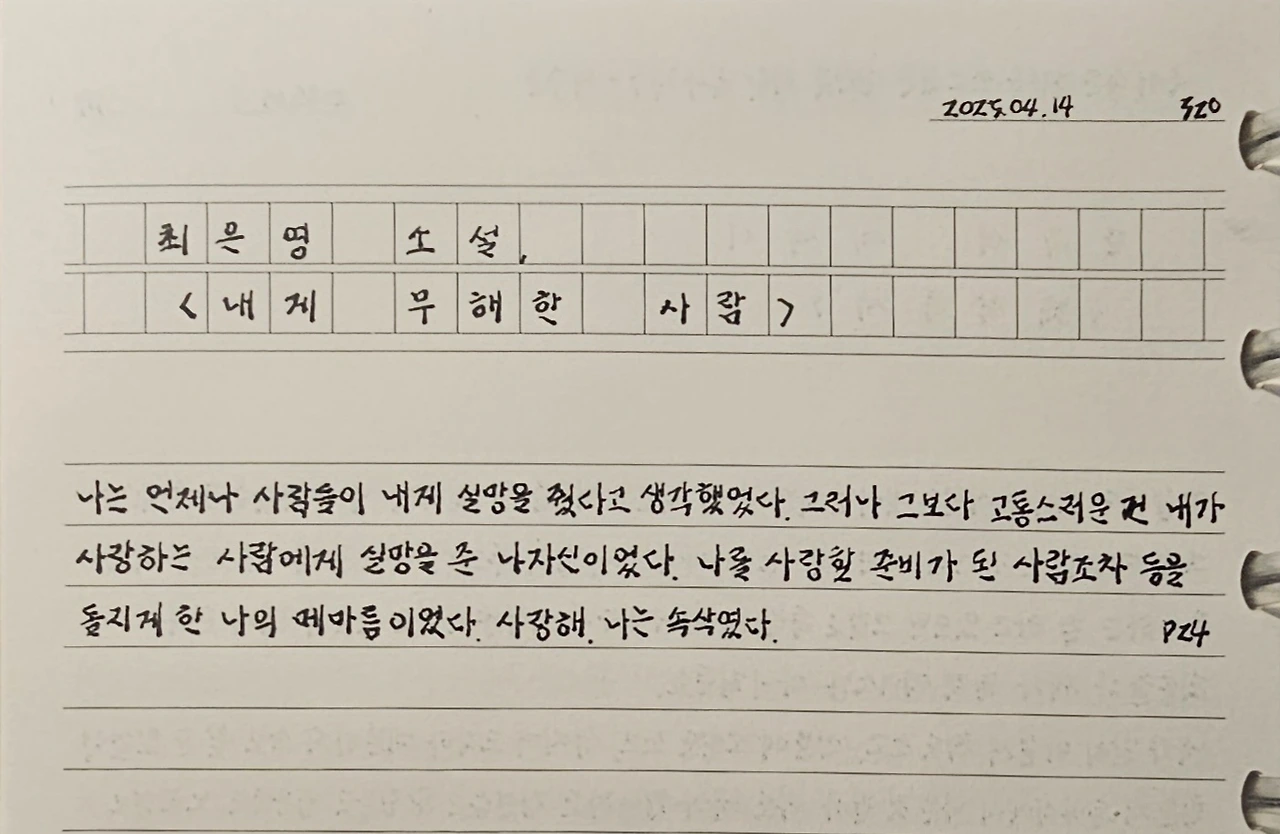 2025.04.14 320
최은영 소설,
<내게 무해한 사람>
나는 언제나 사람들이 내게 실망을 줬다고 생각했었다. 그러나 그보다 고통스러운 건 내가
사랑하는 사람에게 실망을 준 나자신이었다. 나를 사랑할 준비가 된 사람조차 등을
돌지게 한 나의 메마름이었다. 사랑해. 나는 속삭였다.
P24